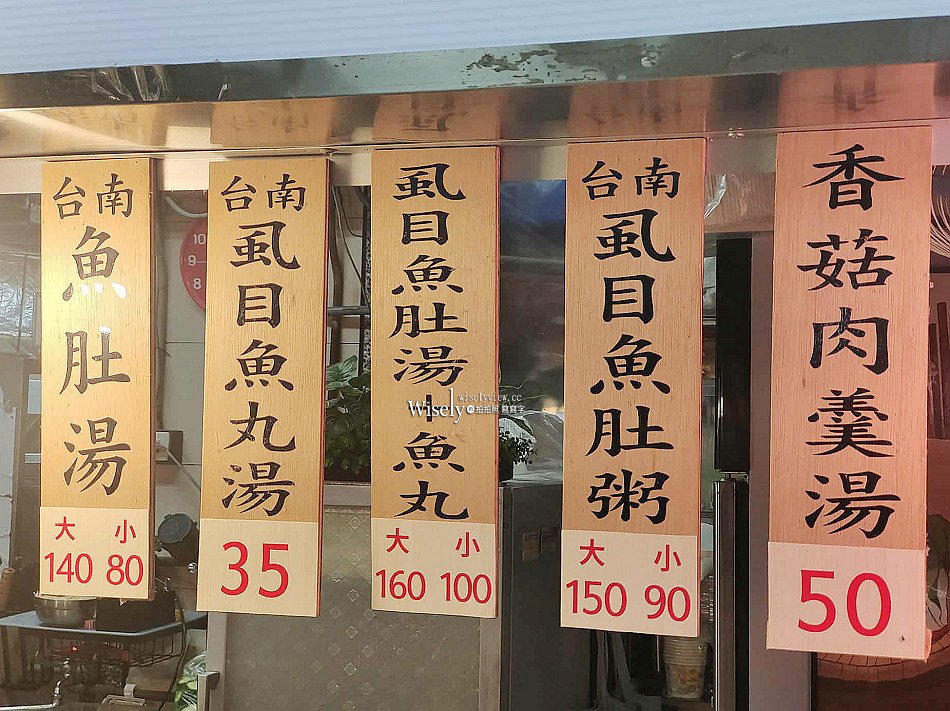 台南
魚肚湯
大 小
140 80
台南
虱目魚丸湯
35
虱目魚肚湯+魚丸
大 小
160 100
台南
虱目魚肚粥
大 小
150 90
香菇肉羹湯
50
10
9
8
wiselyview.cc
Wisely 拍拍照 寫寫字